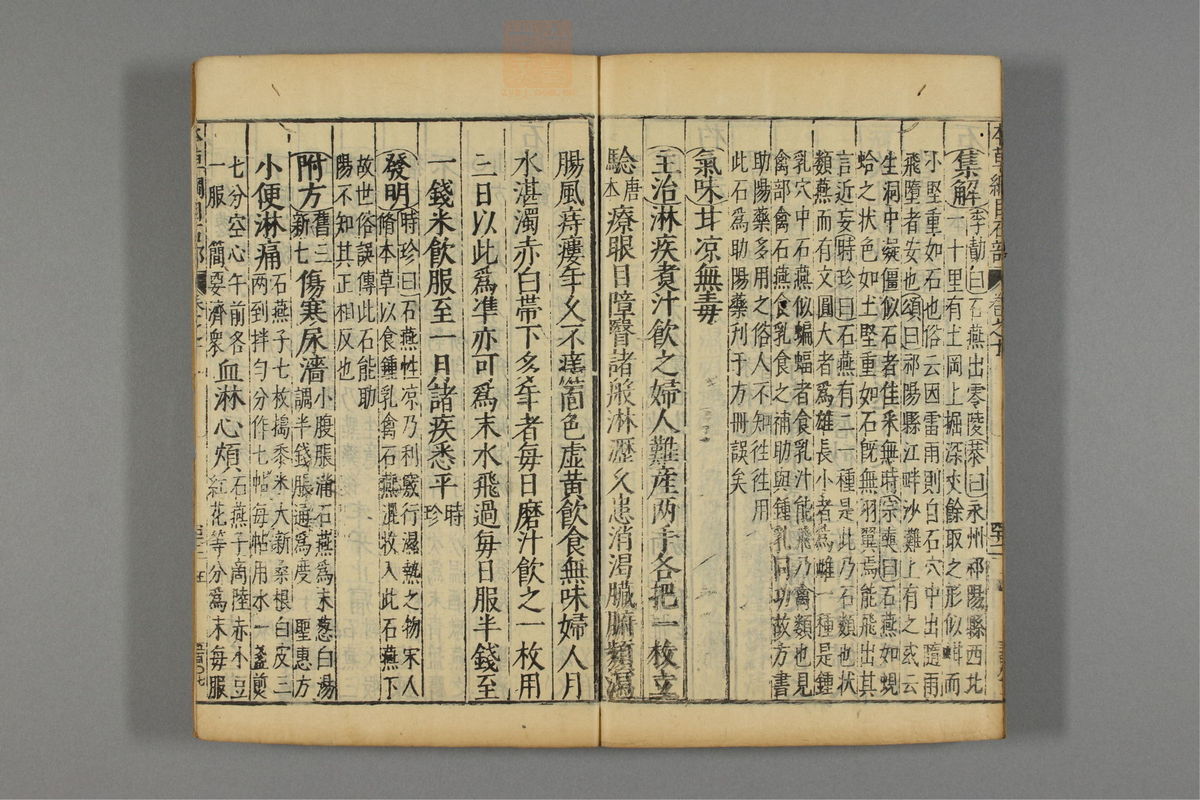 集解李勣曰石燕出零陵恭曰永州祁陽縣西北
一十里有土岡上掘深丈餘取之形似蚶而
小堅重如石也俗云因雷雨則自石穴中出隨雨
飛墮者妄也頌曰祁陽縣江畔沙灘上有之或云
生洞中凝僵似石者佳采無時宗奭曰石燕如蜆
蛤之狀色如土堅重如石既無羽翼焉能飛出其
言近妄時珍曰石燕有二一種是此乃石類也狀
類燕而有文圓大者為雄長小者為雌一種是鍾
乳穴中石燕似蝙蝠者食乳汁能飛乃禽類也見
禽部禽石燕食乳食之補助與鍾乳同功故方書
助陽藥多用之俗人不知往往用
此石為助陽藥刋于方冊誤矣
氣味甘凉無毒
主治淋疾煑汁飲之婦人難産两手各把一枚立
驗唐本療眼目障瞖諸般淋瀝久患消渴臟腑頻瀉
腸風痔瘻年久不瘥面色虛黃飲食無味婦人月
水湛濁赤白帶下多年者每日磨汁飲之一枚用
三日以此為凖亦可為末水飛過每日服半錢至
一錢米飲服至一月諸疾悉平時珍
發明時珍曰石燕性凉乃利竅行濕熱之物宋人
脩本草以食鍾乳禽石燕混收入此石燕下
故世俗誤傳此石能助
陽不知其正相反也
附方舊三新七傷寒尿濇小腹脹滿石燕為末葱白湯
調半錢脹通為度 聖惠方
小便淋痛石燕子七枚搗黍米大新桑根白皮三
两剉拌勻分作七帖每帖用水一盞煎
七分空心午前各
一服 簡要濟衆 血淋心煩石燕子商陸赤小豆
紅花等分為末每服